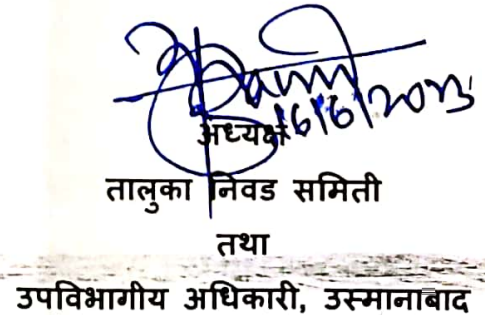 16/6/2023
अध्यक्ष
तालुका निवड समिती
तथा
उपविभागीय अधिकारी, उस्मानाबाद